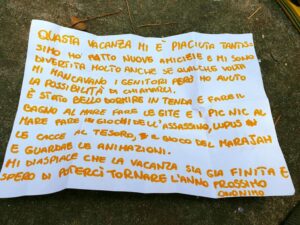 QUASTA VACANZA MI È PIACIUTA TANTIS-
SIMO HO FATTO NUOVE AMICIZIE E MI SONO
DIVERTITA MOLTO ANCHE SE QUALCHE VOLTA
MI MANCAVANO I GENITORI PERÒ HO AVUTO
LA POSSIBILITÀ DI CHIAMARLI.
È STATO BELLO DORMIRE IN TENDA E FARE IL
BAGNO AL MARE FARE LE GITE E I PIC NIC AL
MARE FARE GIOCHI DELL'ASSASSINO, LUPUS IN
LE CACCE AL TESORO, IL GIOCO DEL MARAJAH
E GUARDARE LE ANIMAZIONI.
MI DIASPIACE CHE LA VACANZA SIA GIÀ FINITA E
SPERO DI POTERCI TORNARE L'ANNO PROSSIMO
ANONIMO